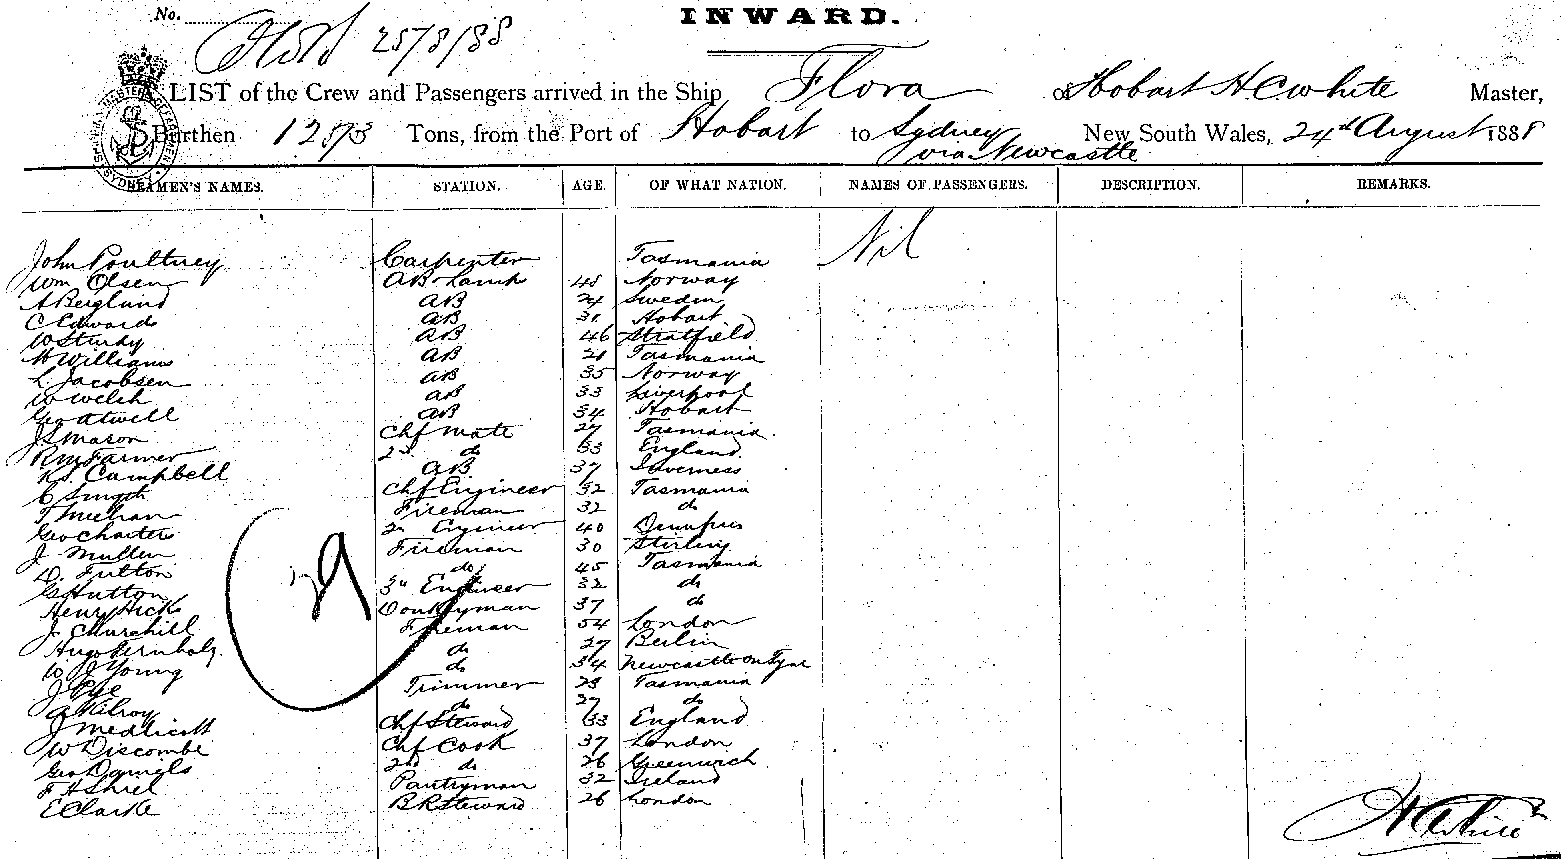 No.
INWARD.
25/8/88
LIST of the Crew and Passengers arrived in the Ship Flora of Hobart H C White Master,
Burthen 1283 Tons, from the Port of Hobart to Sydney New South Wales, 24th August 1888
via Newcastle
SEAMEN'S NAMES. STATION. AGE. OF WHAT NATION. NAMES OF PASSENGERS. DESCRIPTION. REMARKS.
Nil
John Poultney Carpenter Tasmania
Wm Olsen AB Lamps 48 Norway
A Berglund AB 24 Sweden
C Edwards AB 31 Hobart
W Sturdy AB 46 Stratfield
H Williams AB 21 Tasmania
L. Jacobsen AB 35 Norway
W Welch AB 33 Liverpool
Geo Atwell AB 34 Hobart
J S Mason Chf Mate 27 Tasmania
R M Farmer 2nd do 33 England
Campbell AB 37 Inverness
C Smyth Chf Engineer 32 Tasmania
T Meehan Fireman 32 do
Geo Charters 2nd Engineer 40 Dumfries
J Mullen Fireman 30 Stirling
D. Fulton do 45 Tasmania
G Hutton 3rd Engineer 32 do
Henry Hicks Donkeyman 37 do
J Churchill Fireman 54 London
Hugo Bernholz do 27 Berlin
W J Young do 34 Newcastle on Tyne
J Pye Trimmer 23 Tasmania
A Kilroy do 27 do
J Medlicott Chf Steward 33 England
W Discombe Chf Cook 37 London
Geo Daniels 2nd do 26 Greenwich
F H Shiel Pantryman 32 Ireland
E Clarke B R Steward 26 London
29
H C White